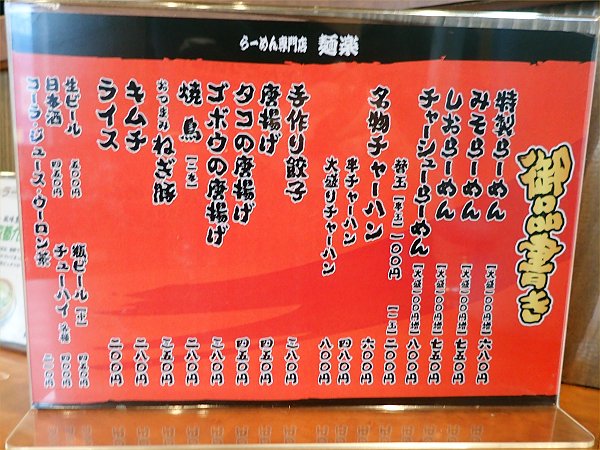 らーめん専門店 麺楽
御品書き
特製らーめん [大盛一〇〇円増] 六八〇円
みそらーめん [大盛一〇〇円増] 七五〇円
しおらーめん [大盛一〇〇円増] 七五〇円
チャーシューらーめん [大盛一〇〇円増] 八〇〇円
替玉 [半玉] 一〇〇円 [一玉] 二〇〇円
名物チャーハン 六〇〇円
半チャーハン 四八〇円
大盛りチャーハン 八〇〇円
手作り餃子 二八〇円
唐揚げ 四五〇円
タコの唐揚げ 四五〇円
ゴボウの唐揚げ 二八〇円
焼鳥 二八〇円
おつまみねぎ豚 二五〇円
キムチ 二八〇円
ライス 二〇〇円
生ビール 五〇〇円 瓶ビール [中] 四五〇円
日本酒 四五〇円 チューハイ 各種 四〇〇円
コーラ・ジュース・ウーロン茶 二〇〇円